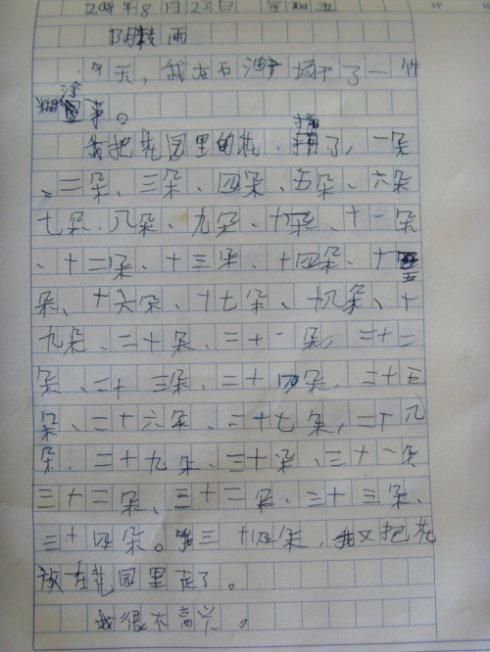 年8月25日 星期五
阴转雨
今天,我在石油广场干了一件
糊涂事。
我把花园里的花摘了,一朵
、二朵、三朵、四朵、五朵、六朵
七朵、八朵、九朵、十朵、十一朵
、十二朵、十三朵、十四朵、十五
朵、十六朵、十七朵、十八朵、十
九朵、二十朵、二十一朵,二十二
朵、二十三朵、二十四朵,二十五
朵、二十六朵、二十七朵,二十八
朵、二十九朵、三十朵、三十一朵
三十二朵、三十二朵、三十三朵、
三十四朵。三十四朵,我又把花
放在花园里走了。
我很不高兴。